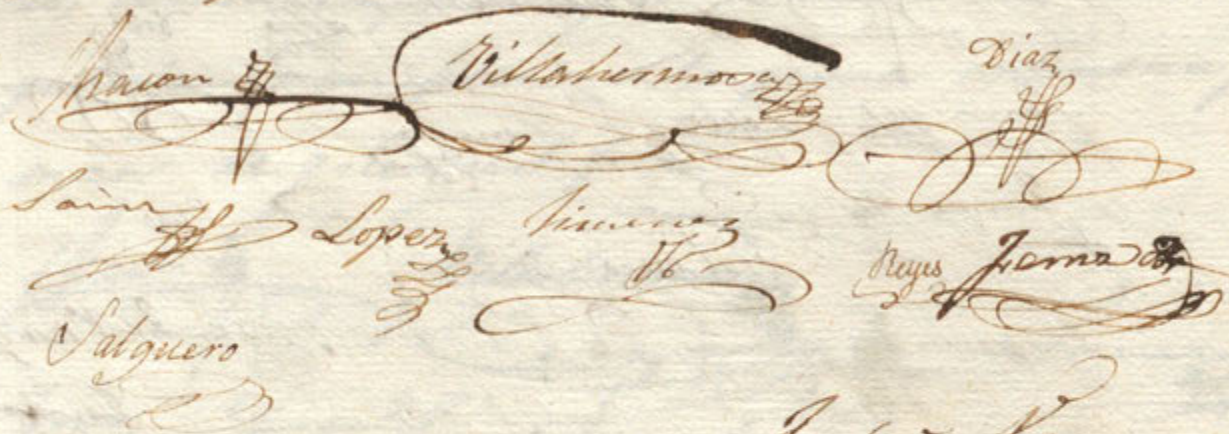 Chacon Villahermosa Diaz
Sainz Lopez Ximenez Reyes
Salguero